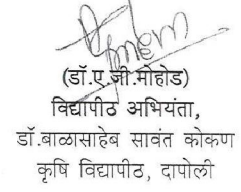 (डॉ.ए.जी.मोहोड)
विद्यापीठ अभियंता,
डॉ.बाळासाहेब सावंत कोकण
कृषि विद्यापीठ, दापोली